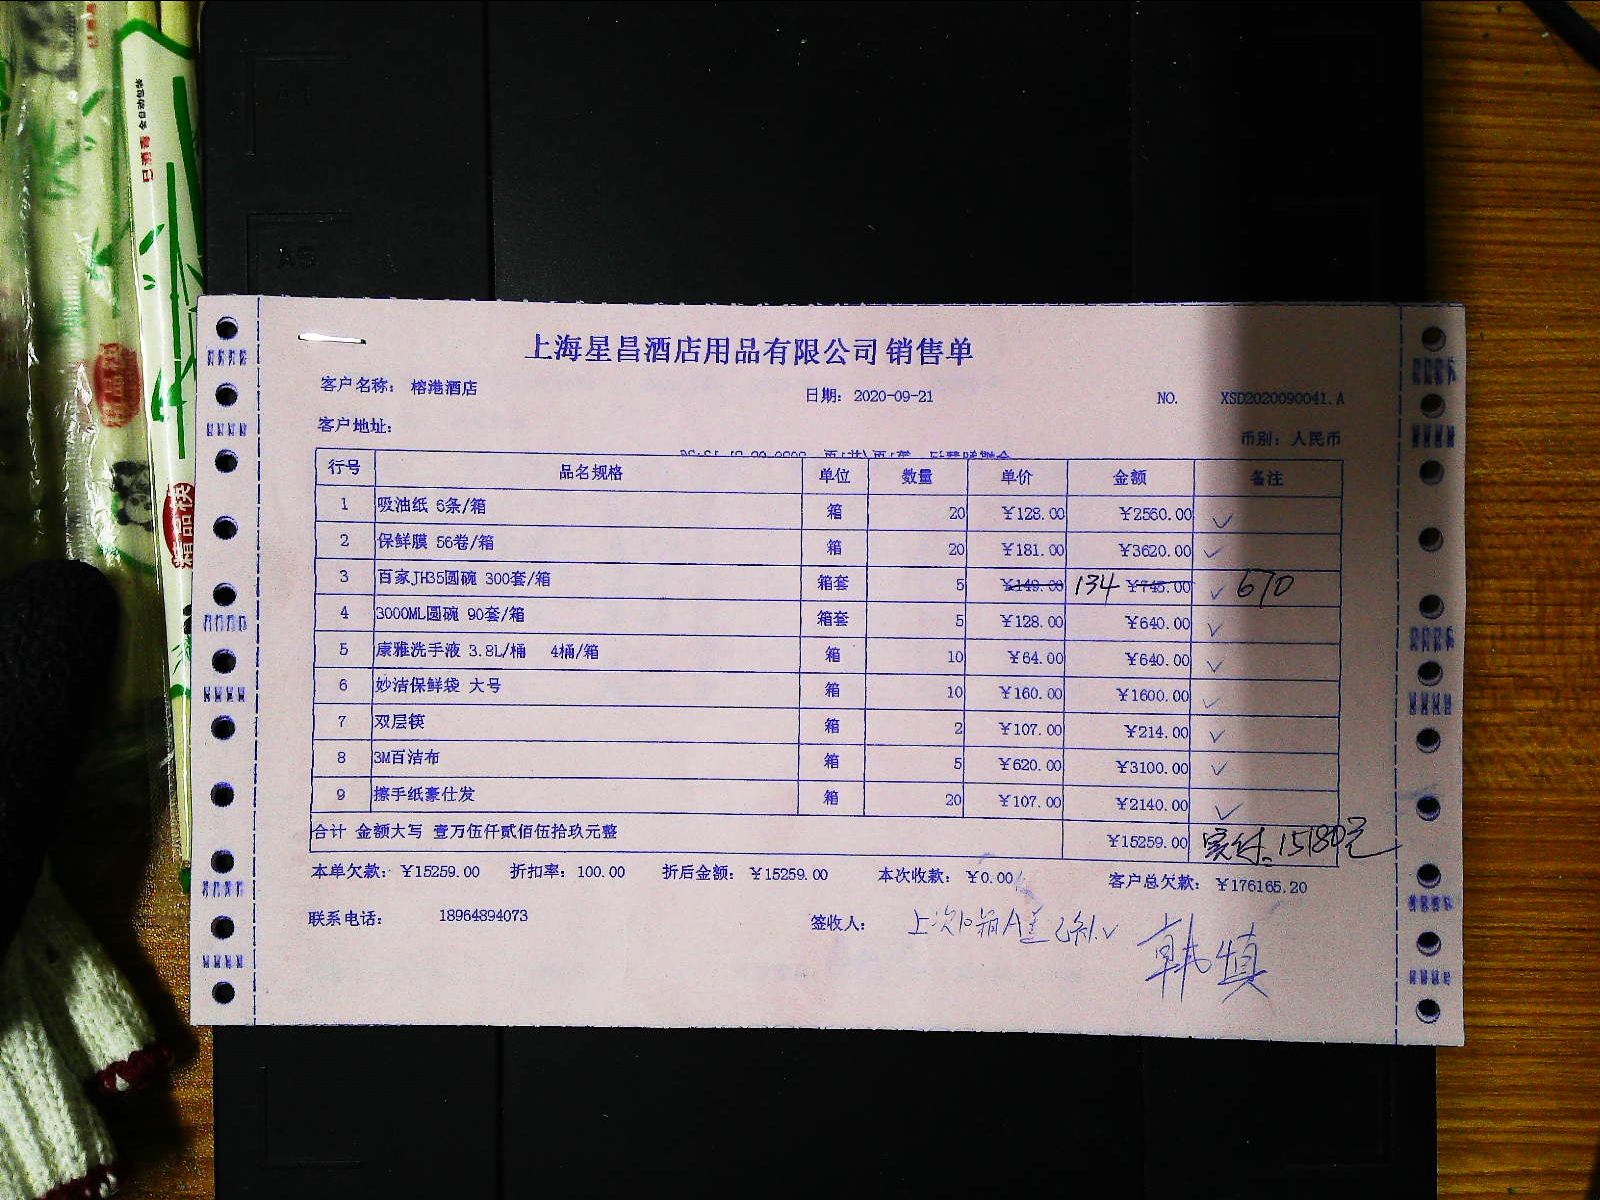 已消毒
上海星昌酒店用品有限公司 销售单
客户名称： 榕港酒店 日期：2020-09-21 NO. XSD2020090041.A
客户地址： 币别：人民币
行号 品名规格 单位 数量 单价 金额 备注
1 吸油纸 6条/箱 箱 20 ¥128.00 ¥2560.00 ✓
2 保鲜膜 56卷/箱 箱 20 ¥181.00 ¥3620.00 ✓
3 百家JH35圆碗 300套/箱 箱套 5 ¥149.00 134 ¥745.00 ✓ 670
4 3000ML圆碗 90套/箱 箱套 5 ¥128.00 ¥640.00 ✓
5 康雅洗手液 3.8L/桶 4桶/箱 箱 10 ¥64.00 ¥640.00 ✓
6 妙洁保鲜袋 大号 箱 10 ¥160.00 ¥1600.00 ✓
7 双层筷 箱 2 ¥107.00 ¥214.00 ✓
8 3M百洁布 箱 5 ¥620.00 ¥3100.00 ✓
9 擦手纸豪仕发 箱 20 ¥107.00 ¥2140.00 ✓
合计 金额大写 壹万伍仟贰佰伍拾玖元整 ¥15259.00 实付：15180元
本单欠款：¥15259.00 折扣率：100.00 折后金额：¥15259.00 本次收款：¥0.00 客户总欠款：¥176165.20
联系电话： 18964894073 签收人： 上次10箱A盖已补.✓
韩慎